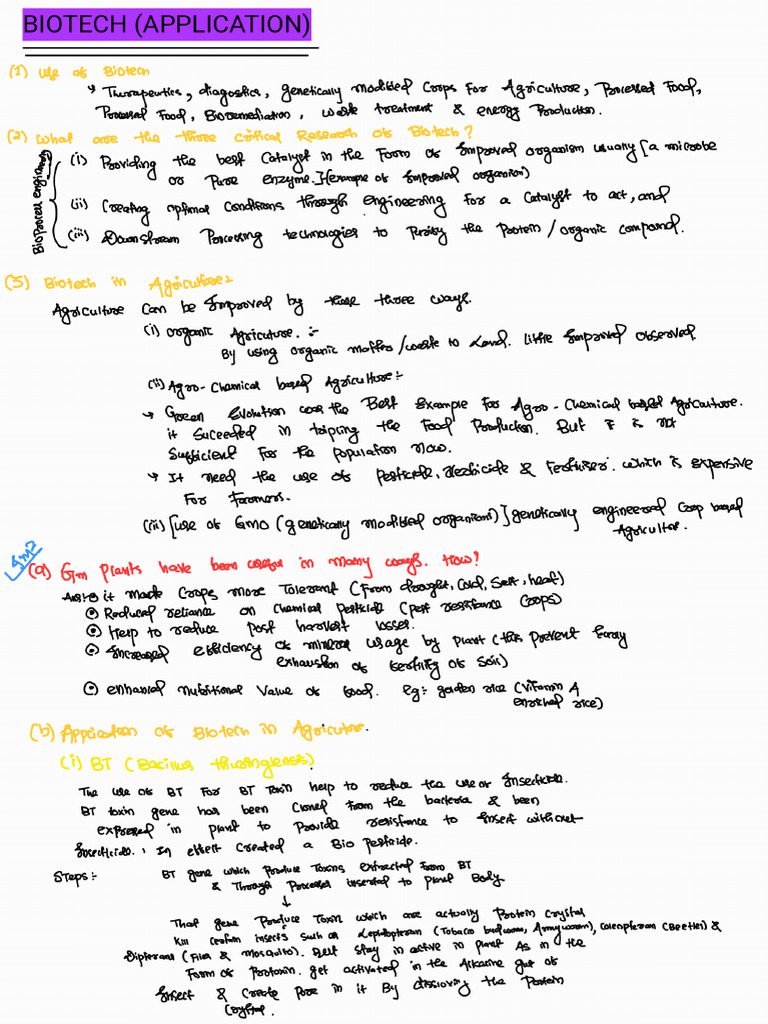 BIOTECH (APPLICATION)
(1) Use of Biotech
↳ Therapeutics, diagnostics, genetically Modified Corps For Agriculture, Processed Food,
Processed Food, Bioremediation, waste treatment & energy Production.
(2) What are the three critical Research of Biotech?
Bioprocess engineering
(i) Providing the best Catalyst in the Form of Improved organism usually [a microbe
or Pure enzyme.] (example of Improved organism)
(ii) Creating optimal Conditions through engineering For a Catalyst to act, and
(iii) Downstream Processing technologies to Purify the Protein / organic compound.
(3) Biotech in Agriculture:
Agriculture Can be Improved by these three ways.
(i) organic Agricuture. :-
By using organic matter/waste to Land. little Improved Observed.
(ii) Agro-Chemical based Agriculture:-
↳ Green Evolution was the Best Example For Agro-Chemical based Agriculture.
it Suceeded in tripling the Food Production. But it is not
Sufficient For the population now.
↳ It need the use of Pesticide, Herbicide & Fertiliser. which is expensive
For Farmers.
(iii) [use of GMO (genetically modified organisms)] genetically engineered Crop based
Agricultur.
Imp
(a) Gm plants have been useful in many ways. How?
Ans:- it made Crops more Tolerent (From drought, Cold, Salt, heat)
Reduced reliance on Chemical Pesticide (pest resistance Corps)
Help to reduce post harvest losses.
Increased efficiency of mineral usage by Plant (this prevent Early
exhaustion of fertility of Soil)
enhanced Nutritional Value of food. Eg:- golden rice (Vitamin A
enriched rice)
(b) Application of Biotech in Agricultur.
(i) BT (Bacillus thuringiensis)
The use of BT For BT Toxin help to reduce the use of Insecticide.
BT toxin gene has been Cloned From the bacteria & been
expressed in plant to Provide resistance to Insect without
Insecticide. In effect Created a Bio Pesticide.
Steps:- BT gene which Produce Toxins extracted From BT
& Through Processes inserted to plant Body
↓
That gene Produce Toxin which are actually Protein Crystal
Kill Certain insects Such as Lepidopteran (Tobacco budworm, Armyworm), coleopteran (Beetles) &
Dipterans (Flies & Mosquito). But stay in active in plant As in the
Form of Protoxin. get activated in the Alkaline gut of
Insect & Create Pore in it By dissolving the Protein
Crystal.